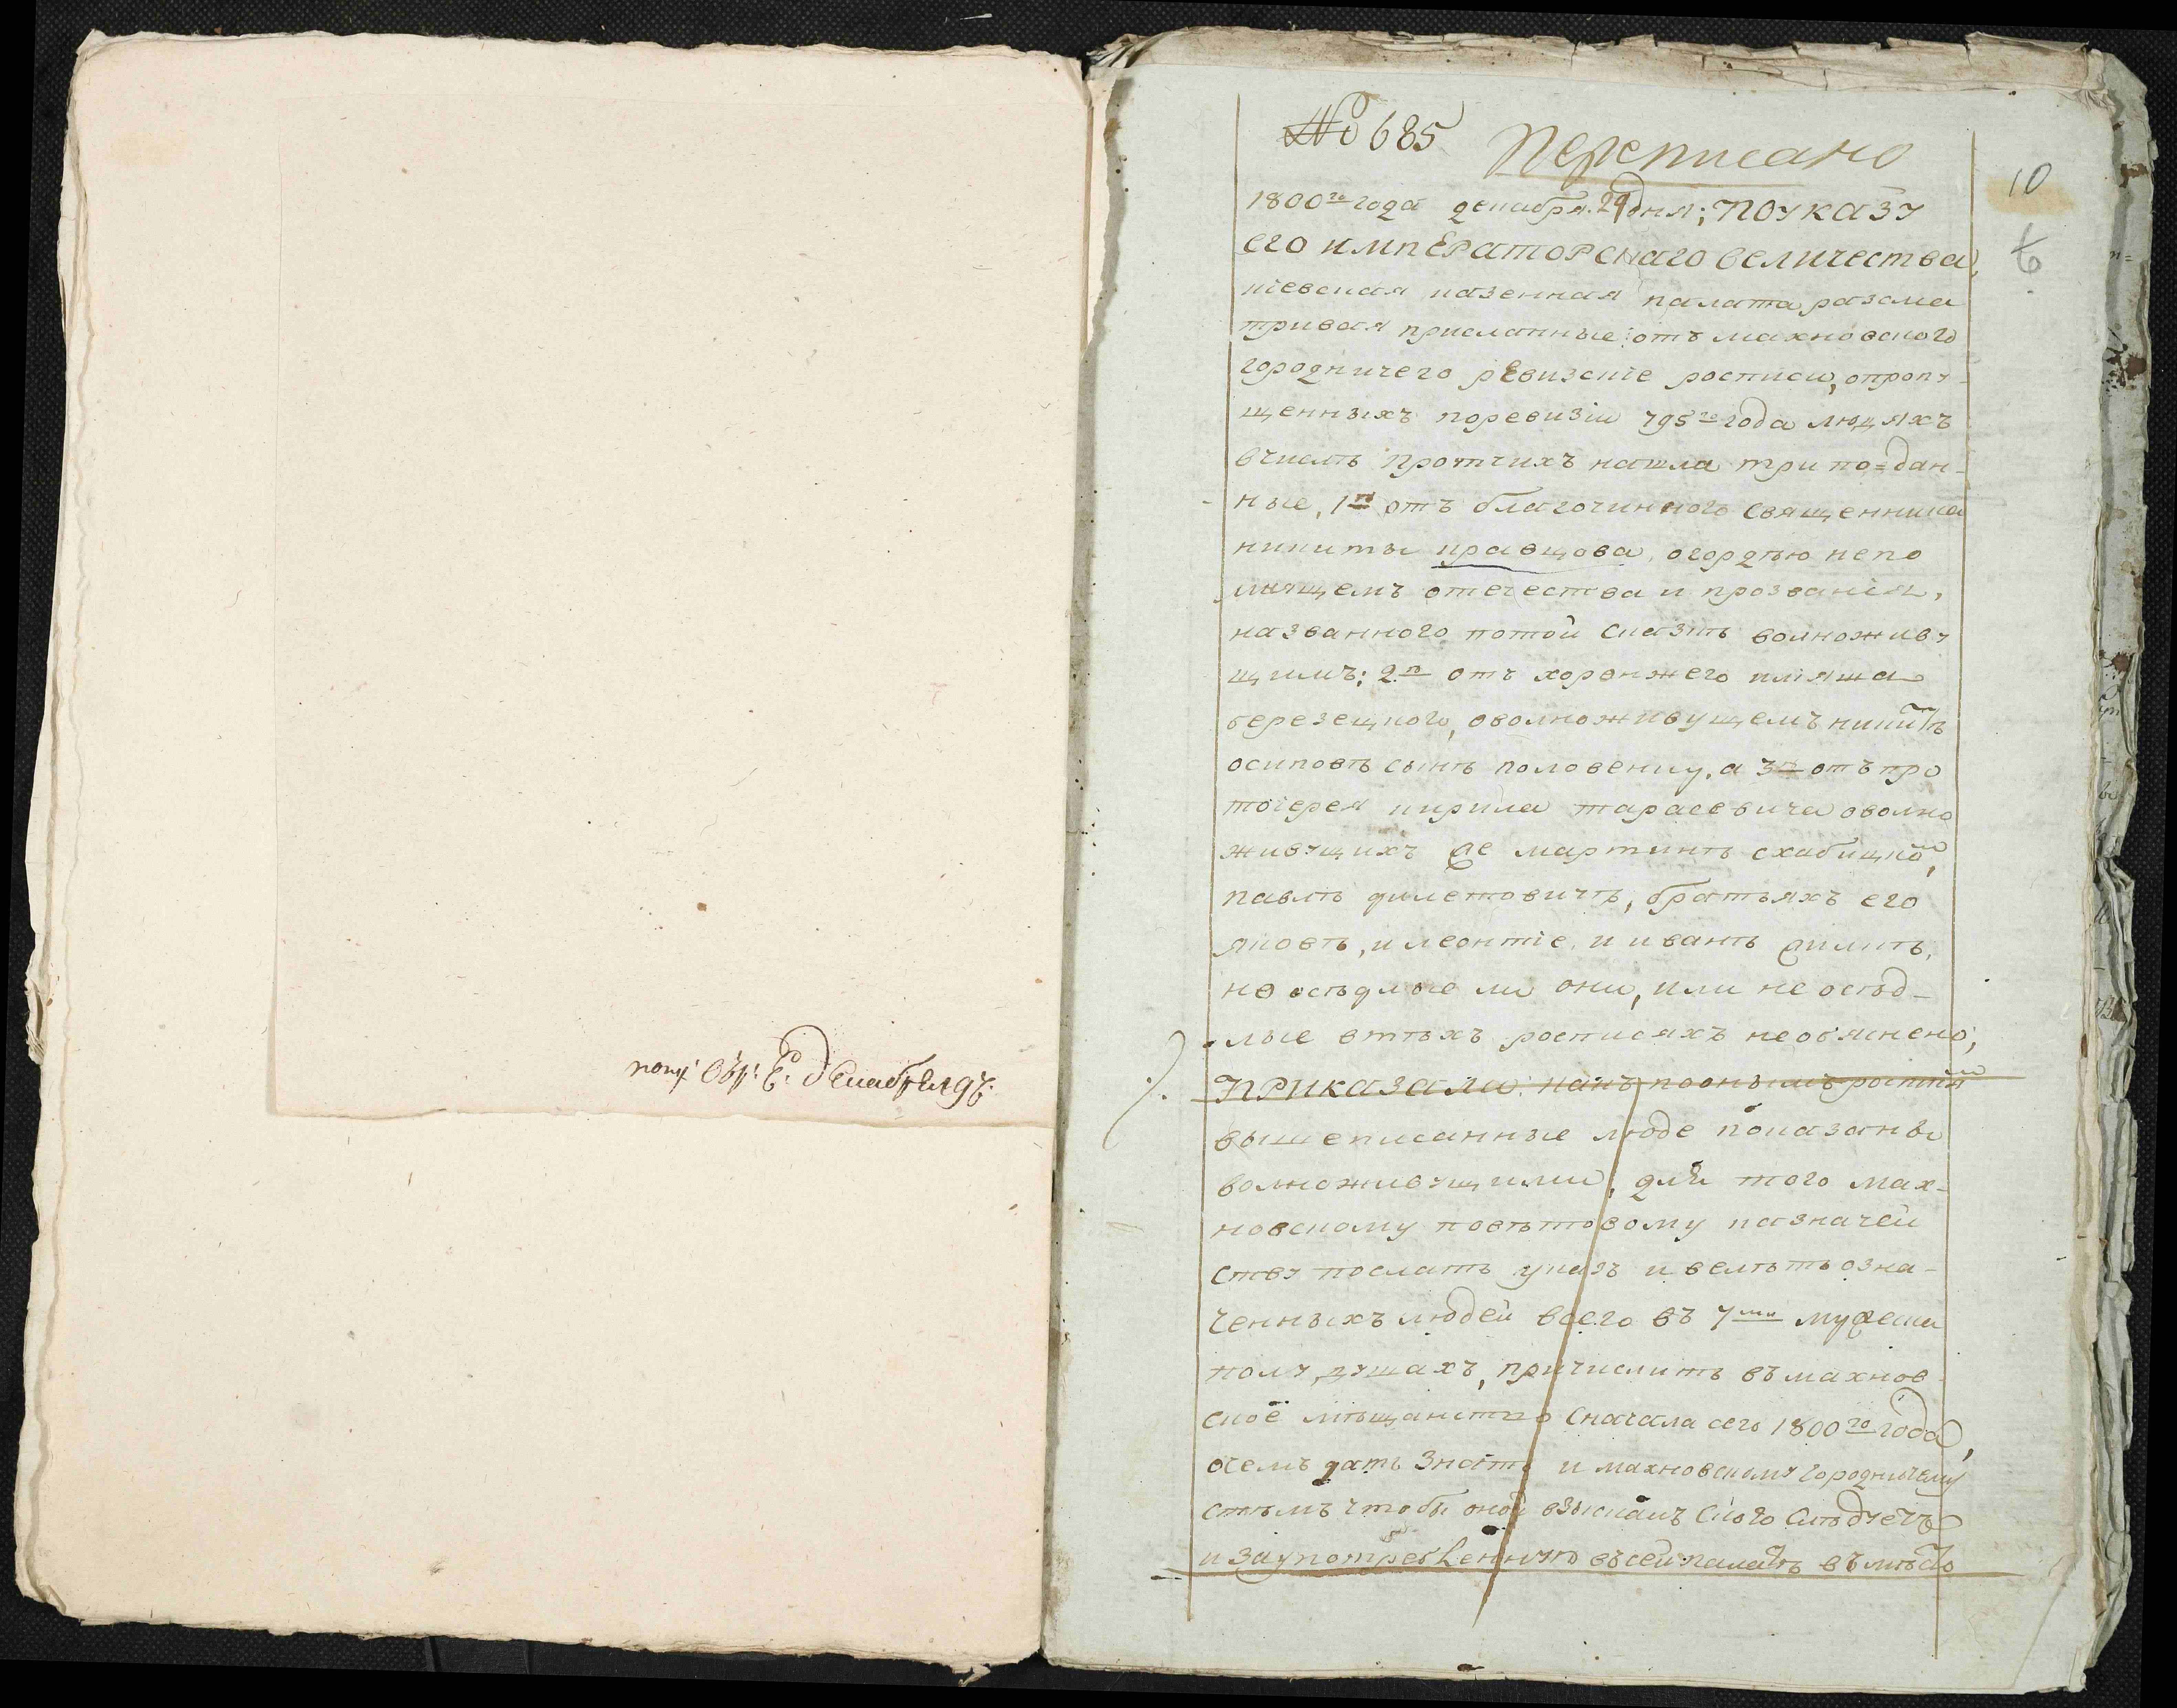 № 685
Переписано
10
6
1800го года декабря 29 дня; ПОУКАЗУ
его императорскаго величества,
кіевская казенная палата разсма
тривая присланные отъ махновского
городничего ревизскіе росписи, опропу-
щенныхъ поревизіи 795го года людяхъ
вчислѣ протчихъ нашла три по=дан-
ные, 1я отъ благочинного священника
никиты кравцова, огордѣю непо
мнящемъ отечества и прозванія,
названного потой сказкѣ волноживу
щимъ; 2я отъ хоронжего иліяша
березецкого, оволноживущемъ никитѣ
осиповѣ сынѣ половенку, а 3я отъ про
тоіерея кирила тарасевича оволно
живущихъ же мартинѣ схабицкомъ,
павлѣ филетовичѣ, братьяхъ его
яковѣ, и леонтіе, и иванѣ биликѣ,
но осѣдлые ли они, или не осѣд-
лые втѣхъ росписяхъ необяснено;
ПРИКАЗАЛИ: какъ поонымъ росписям
вышеписанные люде показаны
волноживущими, для того мах-
новскому повѣтовому казначей
ству послать указъ и велѣть озна-
ченныхъ людей всего въ 7ми мужеска
полу душахъ, причислить въ махнов
ское мѣщанство сначала сего 1800го года,
очемъ дать знать и махновскому городничему
стѣмъ чтобы оной взыскалъ ского слѣдуетъ
и заупотребленную въсей палатѣ въмѣсто